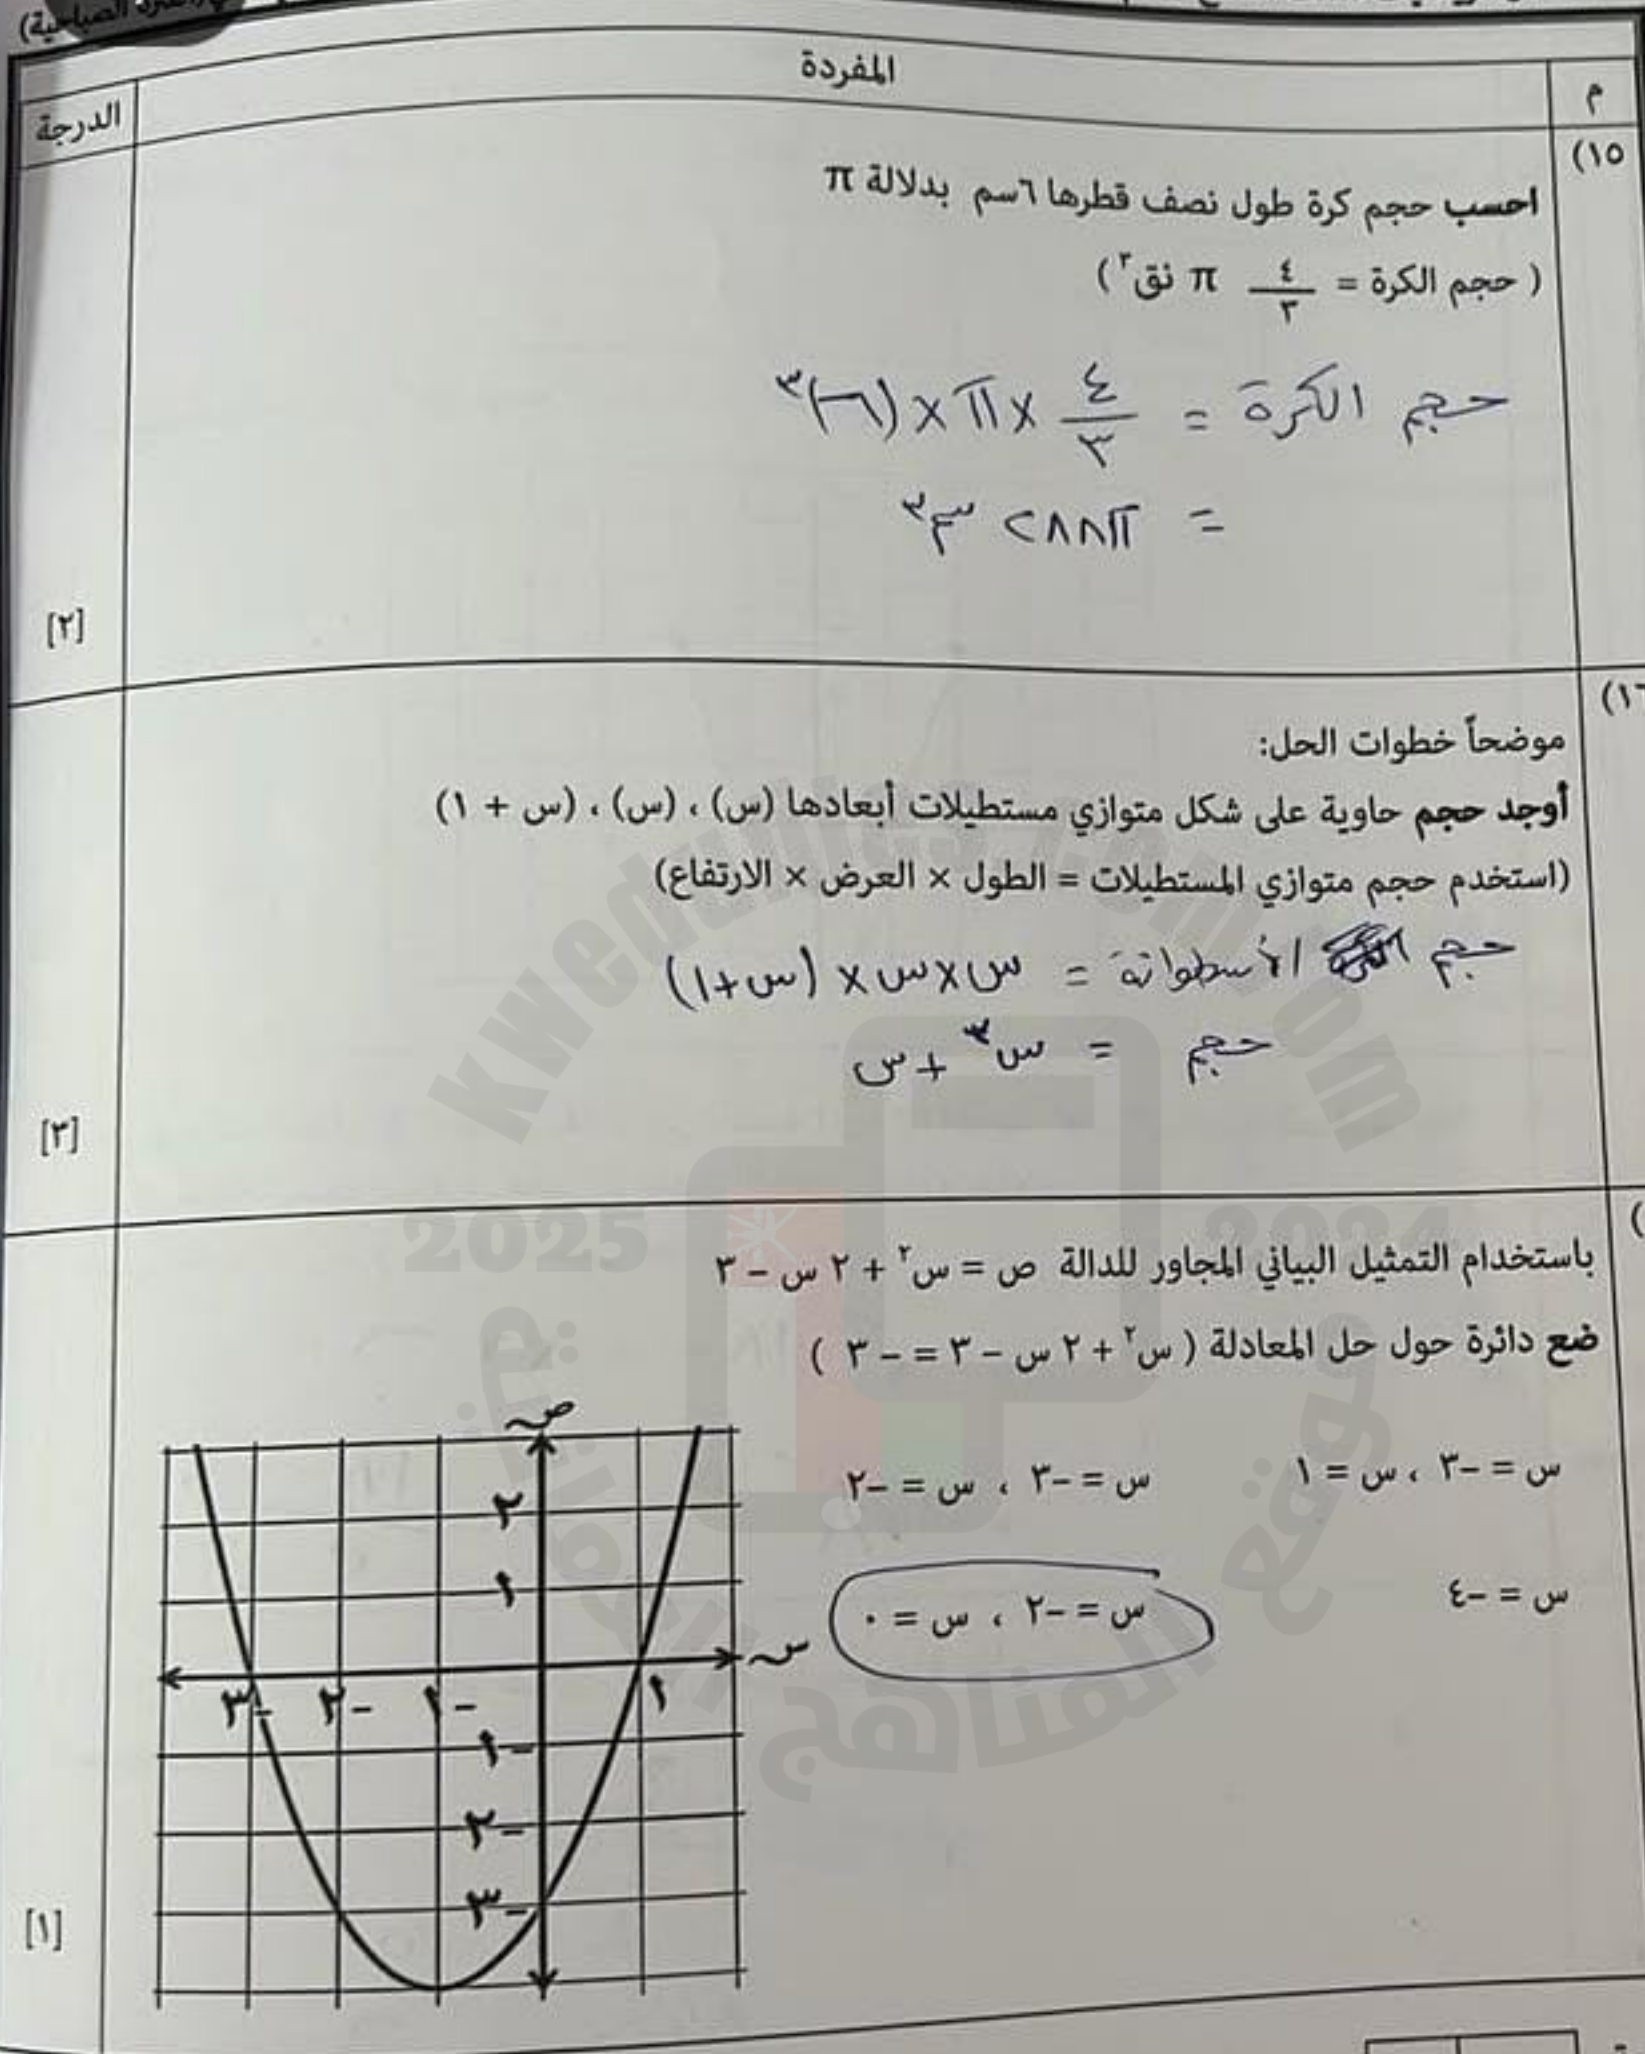 الصباحية)
م المفردة الدرجة
(١٥
احسب حجم كرة طول نصف قطرها ٦سم بدلالة π
( حجم الكرة = ٤/٣ π نق³ )
حجم الكرة = ٤/٣ × π × (٦)³
= ٢٨٨π سم³
[٢]
(١٦
موضحاً خطوات الحل:
أوجد حجم حاوية على شكل متوازي مستطيلات أبعادها (س) ، (س) ، (س + ١)
(استخدم حجم متوازي المستطيلات = الطول × العرض × الارتفاع)
حجم الأسطوانة = س × س × (س+١)
حجم = س³ + س
[٣]
باستخدام التمثيل البياني المجاور للدالة ص = س² + ٢ س – ٣
ضع دائرة حول حل المعادلة ( س² + ٢ س – ٣ = – ٣ )
س = –٣ ، س = ١ س = –٣ ، س = –٢
س = –٤ س = –٢ ، س = ٠
ص
٢
١
س
–٣ –٢ –١ ١
–١
–٢
–٣
[١]
kwedufiles.com
2025 2024
موقع المناهج العمانية